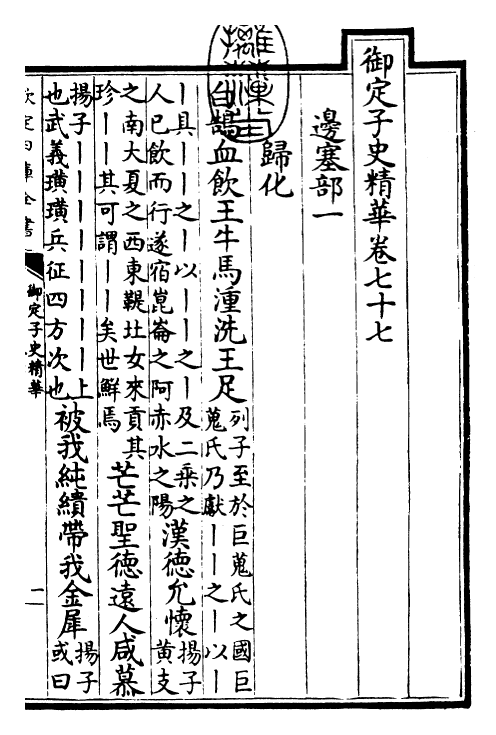 御定子史精華卷七十七
邊塞部一
歸化
白鵠血飲王牛馬湩洗王足
列子至於巨蒐氏之國巨
蒐氏乃獻丨丨之丨以丨
丨具丨丨之丨以丨丨之丨及二乘之
人已飲而行遂宿崑崙之阿赤水之陽
漢德允懷
揚子
黃支
之南大夏之西東鞮北女來貢其
珍丨丨其可謂丨丨矣世鮮焉
芒芒聖德遠人咸慕
揚子丨丨丨丨丨丨丨丨上
也武義璜璜兵征四方次也
被我純繢帶我金犀
揚子
或曰
欽定四庫全書
御定子史精華
二